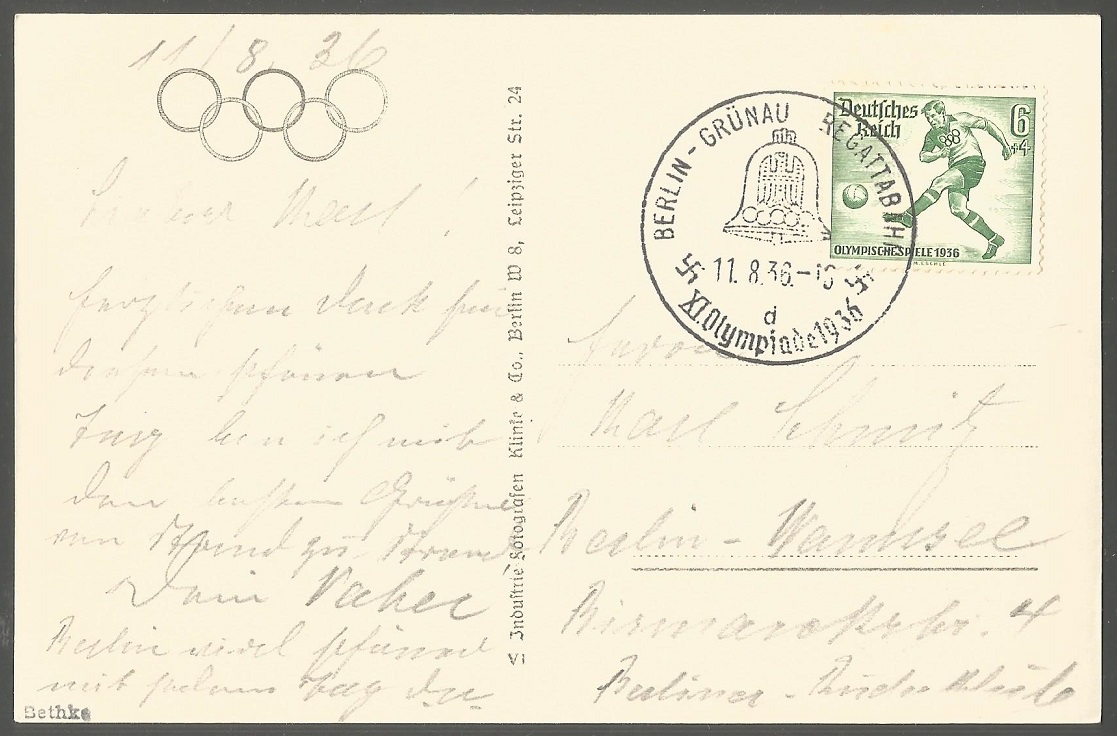 11/8. 36
Lieber Karl!
herzlichen Dank für
diesen schönen
und bin ich mit
den besten Grüßen
von
Dein Vater
Berlin wird schöner
mit jedem Tag
Bethke
Industrie-Fotografen Klinke & Co., Berlin W 8, Leipziger Str. 24
BERLIN-GRÜNAU REGATTABAHN
11. 8. 36.-
d
XI. Olympiade 1936
Deutsches
Reich
6
+4
OLYMPISCHE SPIELE 1936
Herrn
Karl Schmitz
Berlin-Wannsee
Bismarckstr. 4
Berliner Ruder-Klub